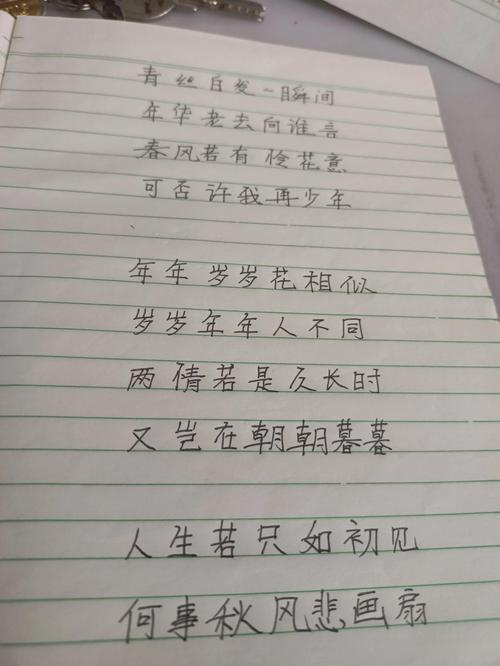 青丝白发一瞬间
年华老去向谁言
春风若有怜花意
可否许我再少年
年年岁岁花相似
岁岁年年人不同
两情若是久长时
又岂在朝朝暮暮
人生若只如初见
何事秋风悲画扇